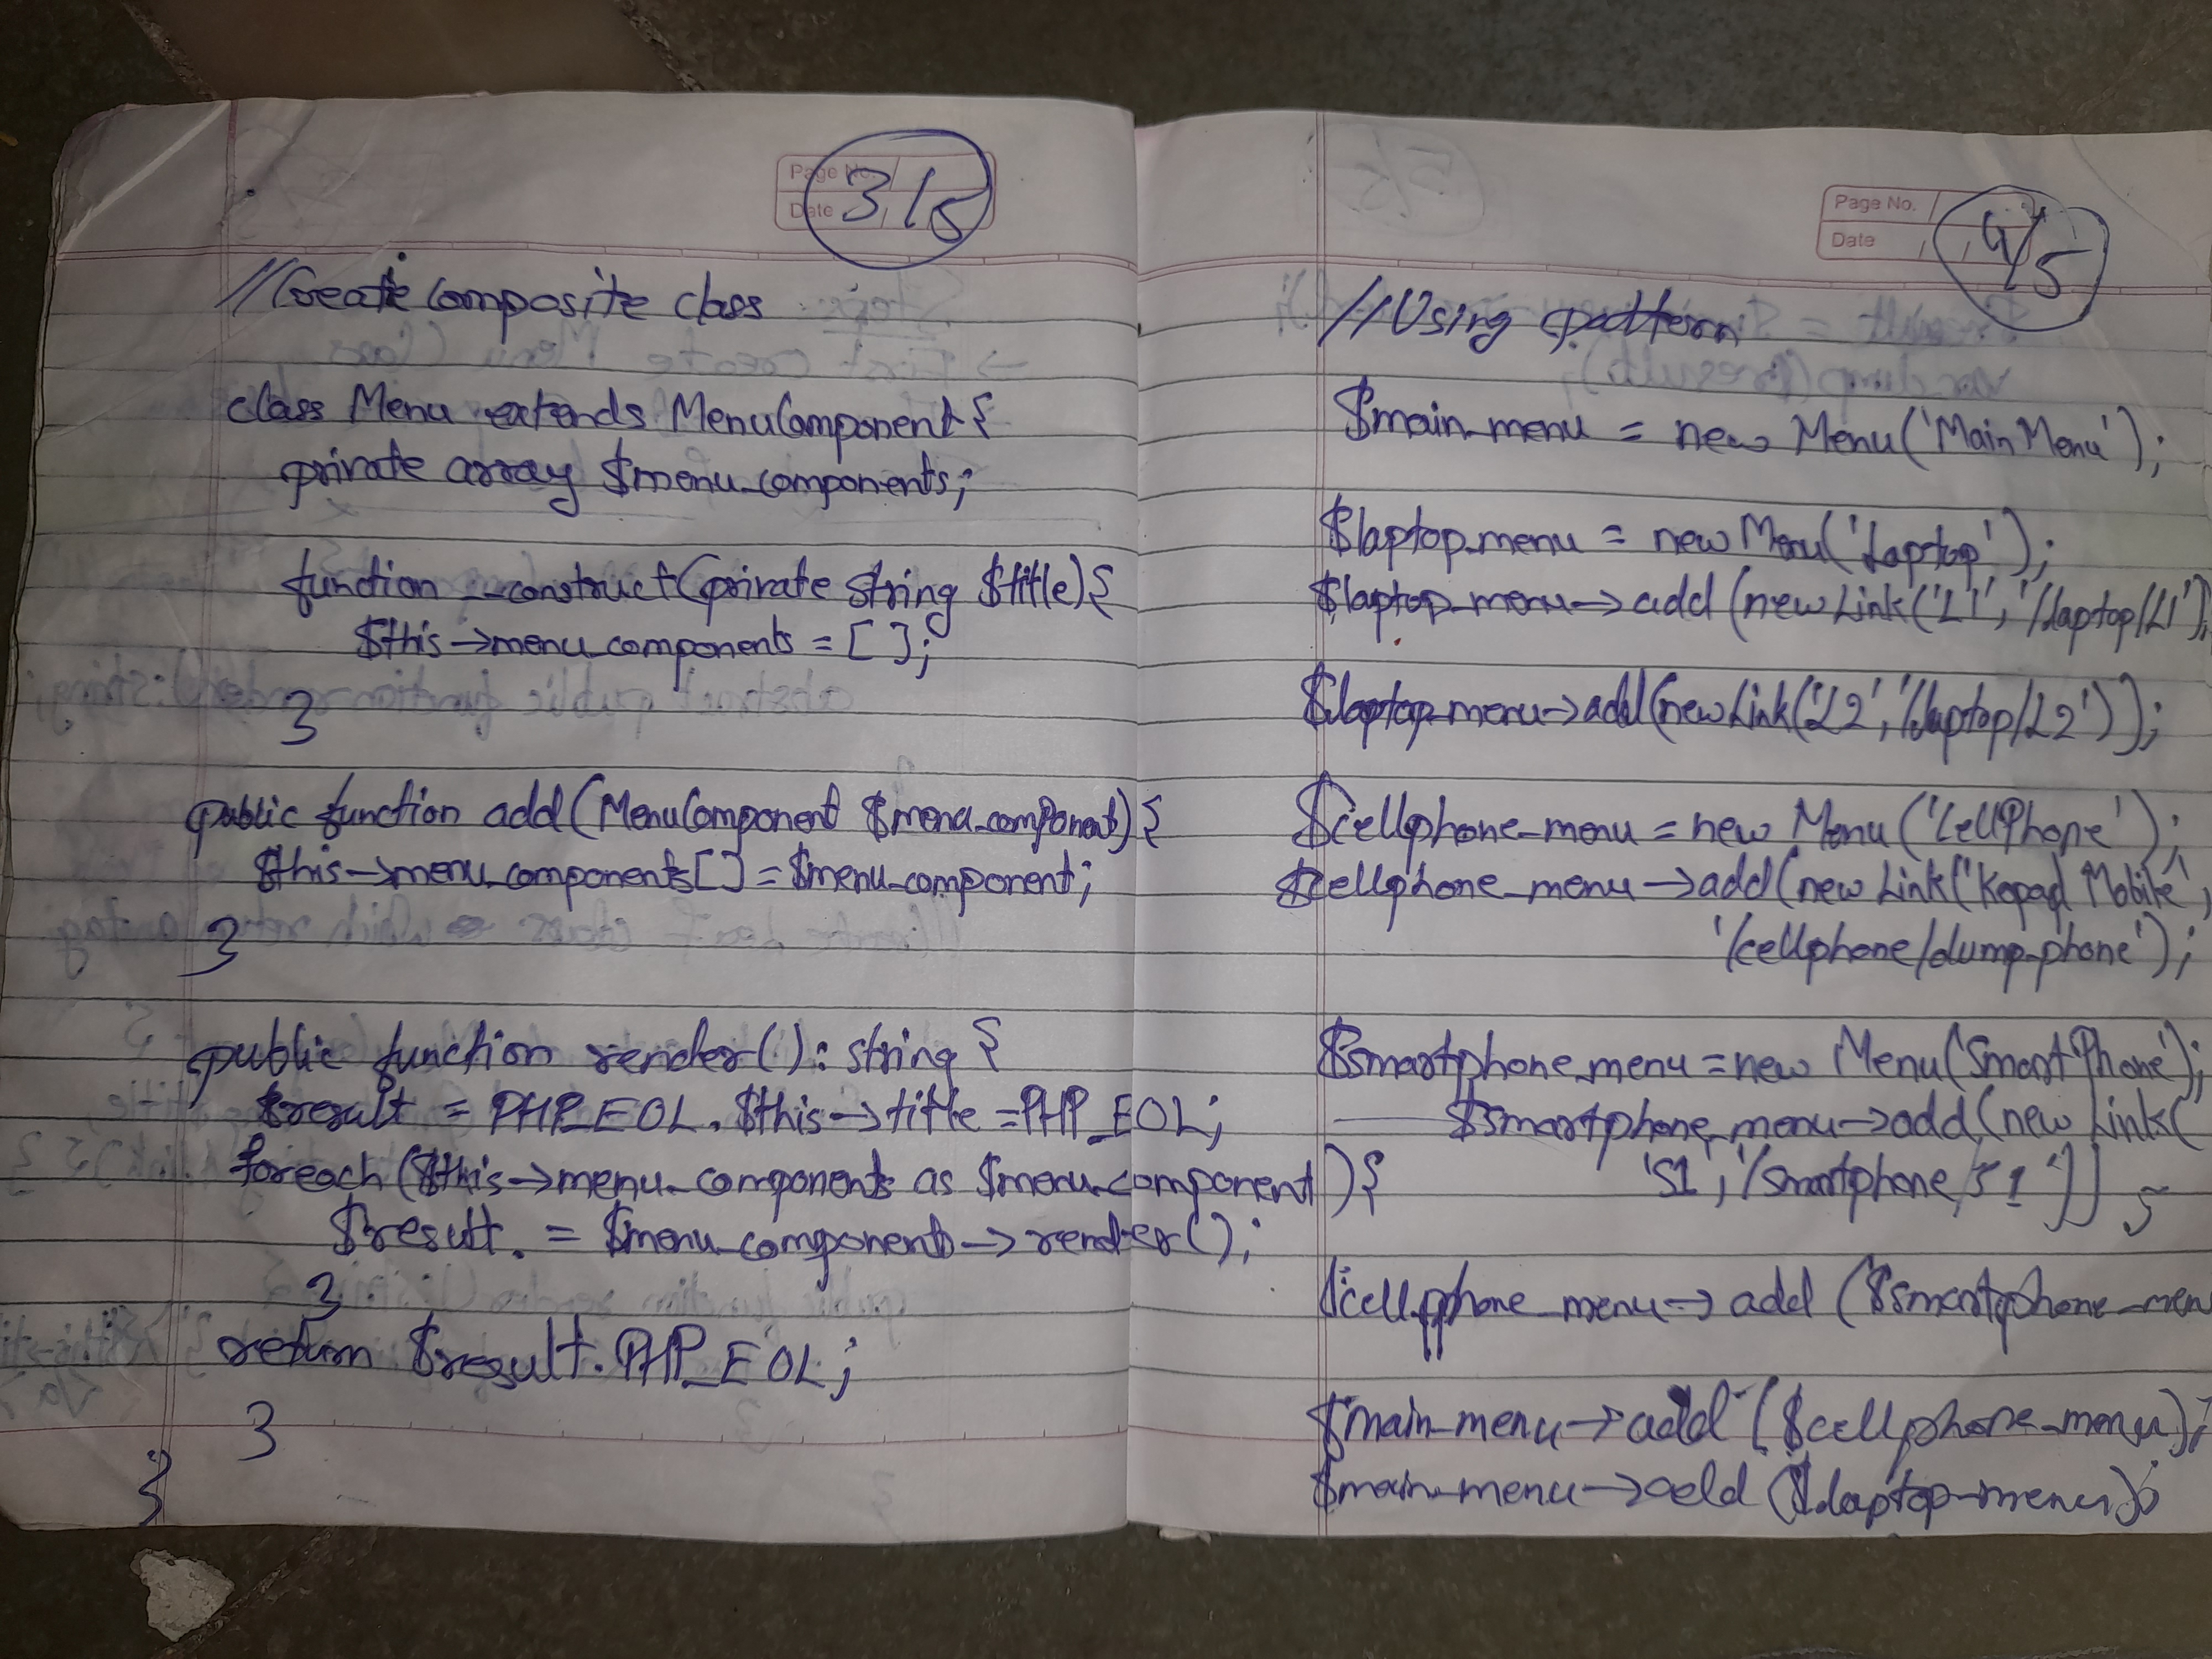 Page No.
Date
3/5
//Create Composite class
class Menu extends MenuComponent {
private array $menu_components;
function __construct(private string $title){
$this->menu_components = [];
}
public function add(MenuComponent $menu_component){
$this->menu_components[] = $menu_component;
}
public function render(): string {
$result = PHP_EOL. $this->title = PHP_EOL;
foreach($this->menu_components as $menu_component){
$result. = $menu_component->render();
}
return $result.PHP_EOL;
}
}
Page No.
Date
4/5
//Using pattern
$main_menu = new Menu('Main Menu');
$laptop_menu = new Menu('Laptop');
$laptop_menu->add(new Link('L1','/laptop/L1');
$laptop_menu->add(new Link('L2','/laptop/L2'));
$cellphone_menu = new Menu('CellPhone');
$cellphone_menu->add(new Link('Kepad Mobile',
'/cellphone/dump_phone');
$smartphone_menu = new Menu('SmartPhone');
$smartphone_menu->add(new Link(
'S1','/Smartphone/S1'));
$cellphone_menu->add($smartphone_men
$main_menu->add($cellphone_menu);
$main_menu->add($laptop_menu);